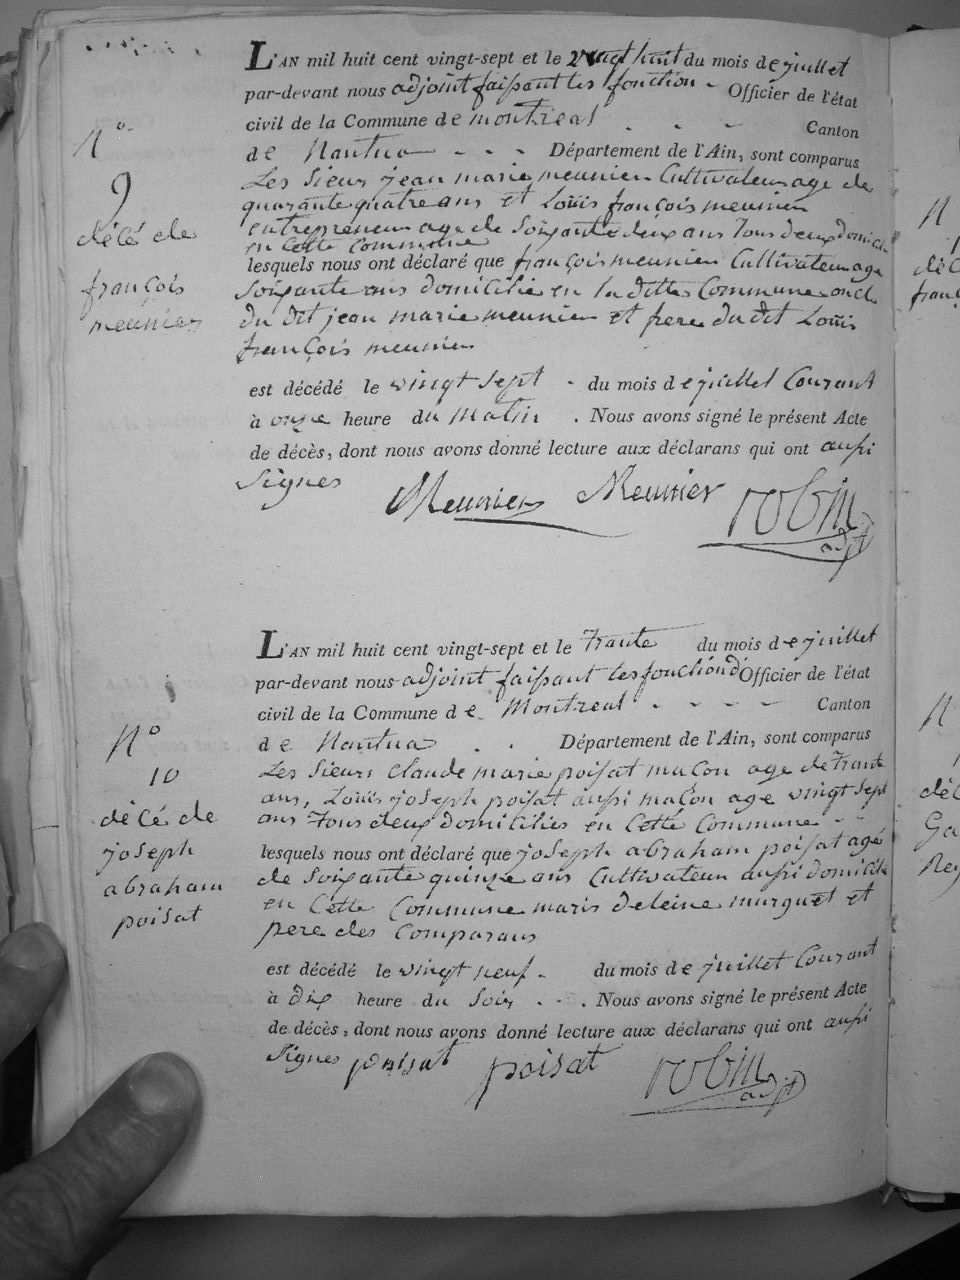 L'AN mil huit cent vingt-sept et le vingt huit du mois de juillet
par-devant nous adjoint faisant les fonction - Officier de l'état
civil de la Commune de montréal - - - Canton
de Nantua - - - Département de l'Ain, sont comparus
Les Sieur jean marie meunier Cultivateur age de
quarante quatre ans et Louis françois meunier
entrepreneur age de Soixante deux ans Tous deux domicilié
en Cette Commune
lesquels nous ont déclaré que françois meunier Cultivateur age
Soixante ans domicilié en la ditte Commune oncle
du dit jean marie meunier et frere du dit Louis
françois meunier
est décédé le vingt sept - du mois de juillet Courant
à onze heure du Matin . Nous avons signé le présent Acte
de décès, dont nous avons donné lecture aux déclarans qui ont aussi
Signes
Meunier Meunier robin
adjt
N°
9
décé de
françois
meunier
L'AN mil huit cent vingt-sept et le Trante du mois de juillet
par-devant nous adjoint faisant les fonction d' Officier de l'état
civil de la Commune de Montreal - - - - Canton
de Nantua . . Département de l'Ain, sont comparus
Les Sieurs Claude marie poisat maçon age de Trante
ans, Louis joseph poisat aussi maçon age vingt sept
ans Tous deux domiciliés en Cette Commune - -
lesquels nous ont déclaré que joseph abraham poisat agé
de Soixante quinze ans Cultivateur aussi domicilié
en Cette Commune maris deleine murguet et
pere des Comparans
est décédé le vingt neuf - du mois de juillet Courant
à dix heure du Soir - - . Nous avons signé le présent Acte
de décès, dont nous avons donné lecture aux déclarans qui ont aussi
Signes poisat poisat robin
adjt
N°
10
décé de
joseph
abraham
poisat